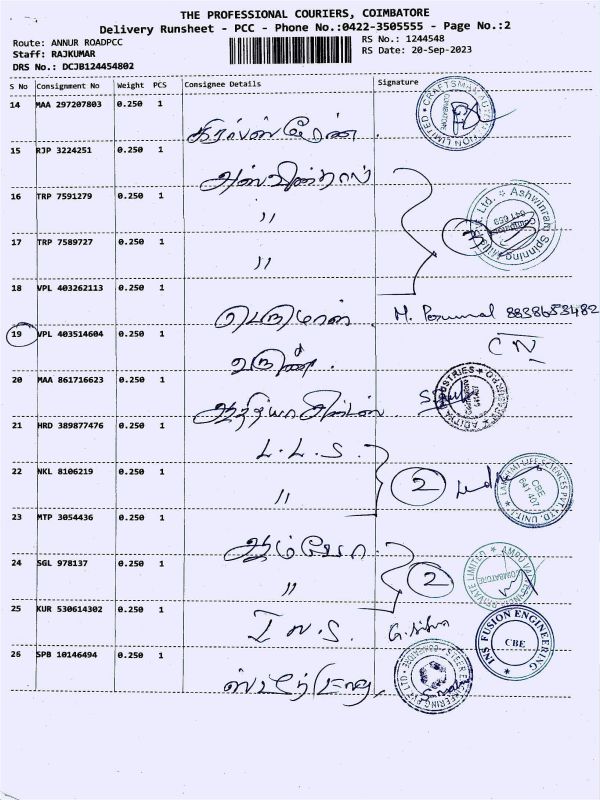 THE PROFESSIONAL COURIERS, COIMBATORE
Delivery Runsheet - PCC - Phone No.:0422-3505555 - Page No.:2
Route: ANNUR ROADPCC
Staff: RAJKUMAR
DRS No.: DCJB124454802
RS No.: 1244548
RS Date: 20-Sep-2023
S No Consignment No Weight PCS Consignee Details Signature
14 MAA 297207803 0.250 1
15 RJP 3224251 0.250 1
16 TRP 7591279 0.250 1 "
17 TRP 7589727 0.250 1 "
18 VPL 403262113 0.250 1 பெருமாள் M. Perumal 8838653482
19 VPL 403514604 0.250 1 அருண். CN
20 MAA 861716623 0.250 1
21 HRD 389877476 0.250 1 L.L.S
22 NKL 8106219 0.250 1 " 2
23 MTP 3054436 0.250 1
24 SGL 978137 0.250 1 " 2
25 KUR 530614302 0.250 1 I N S. G. Siva
26 SPB 10146494 0.250 1
Ashwinram Spinning
ADITYA INDUSTRIES
LAKSHMI LIFE SCIENCES PVT. LTD. UNIT-I
CBE
641 407
INS FUSION ENGINEERING
CBE